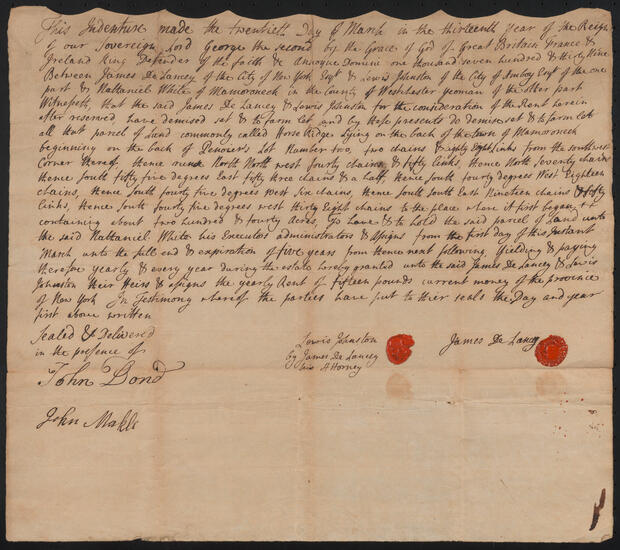 This Indenture made the twentieth Day of March in the thirteenth year of the Reign
of our Sovereign Lord George the second by the Grace of God of Great Britain France &
Ireland King Defender of the faith & Annoque Domini one thousand seven hundred & thirty Nine
Between James De Lancey of the City of New York Esqr & Lewis Johnston of the City of Amboy Esqr of the one
part & Nathaniel White of Mamoroneck in the County of Westchester yeoman of the other part
Witnesseth, that the said James De Lancey & Lewis Johnston for the consideration of the Rent herein
after reserved, have demised set & to farm let and by these presents do demise set & to farm let
all that parcel of Land commonly called Horse Ridge Lying on the back of the Town of Mamoroneck
beginning on the back of Lot Number two, two chains & eighty Eight Links from the southwest
Corner thereof. thence North North west fourty chains & fifty links, thence North Seventy chains
thence South fifty five degrees East fifty three chains & a half, thence South fourty degrees West Eighteen
chains, thence South fourty five degrees West Six chains, thence South South East Nineteen chains & fifty
links, thence South fourty five degrees west thirty Eight chains to the place where it first began
containing about two hundred & fourty Acres, To have & to hold the said parcel of Land unto
the said Nathaniel White his Executors administrators & assigns from the first day of this Instant
March unto the full end & expiration of five years from thence next following, Yielding & paying
therefore yearly & every year during the estate hereby granted unto the said James De Lancey & Lewis
Johnston their Heirs & assigns the yearly Rent of fifteen pounds current money of the province
of New York In Testimony whereof the parties have put to their seals the Day and year
first above written
Sealed & Delivered
in the presence of
John Bond
John
Lewis Johnston
by James De Lancey
his Attorney
James De Lancey